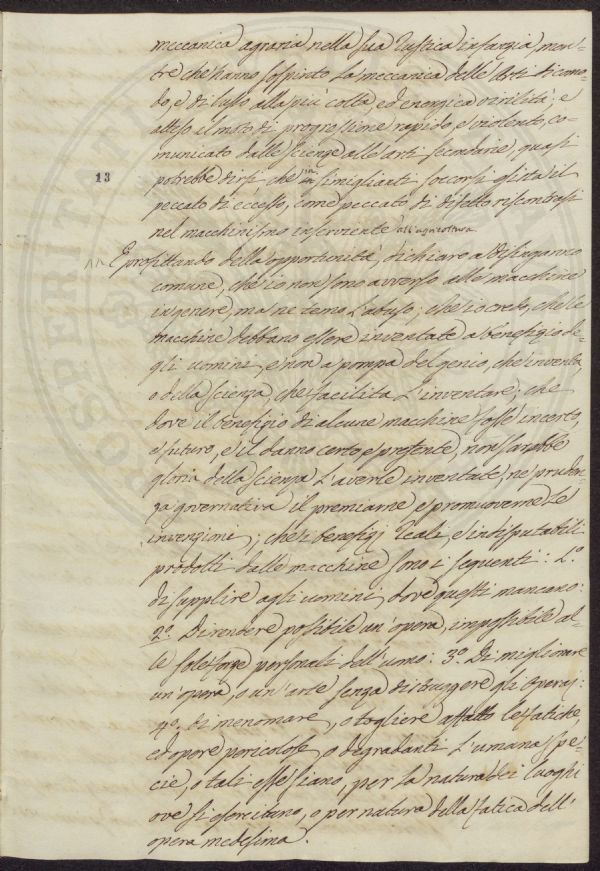 meccanica agraria nella sua rustica infanzia, men-
tre che hanno sospinto la meccanica delle Arti di como-
do, e di lusso alla più colta, ed energica virilità; e
atteso il moto di progressione rapido, e violento, co-
municato dalle scienze alle arti secondarie, quasi
13
potrebbe dirsi che in simiglianti soccorsi esista il
peccato di eccesso, come peccato di difetto riscontrasi
nel macchinismo inserviente all'agricoltura.
E profittando della opportunità, dichiaro a disinganno
comune, che io non sono avverso alle macchine
in genere, ma ne temo l'abuso; che io credo, che le
macchine debbano essere inventate a benefizio de-
gli uomini, e non a pompa del genio, che inventa,
o della scienza, che facilita l'inventare; che
dove il benefizio di alcune macchine fosse incerto,
e futuro, e il danno certo e presente, non sarebbe
gloria della scienza l'averle inventate, ne pruden-
za governativa il premiarne e promuoverne le
invenzioni; che i benefizj reali, e indisputabili
prodotti dalle macchine sono i seguenti: 1.º
di supplire agli uomini, dove questi mancano:
2º. Di rendere possibile un'opera, impossibile al-
le sole forze personali dell'uomo: 3º. Di migliorare
un'opera, o un'arte senza distruggere gli Operaj:
4º. di menomare, o togliere affatto le fatiche,
ed opere pericolose, o degradanti l'umana spe-
cie, o tali esse siano, per la natura dei luoghi
ove si esercitano, o per natura della fatica dell'
opera medesima.